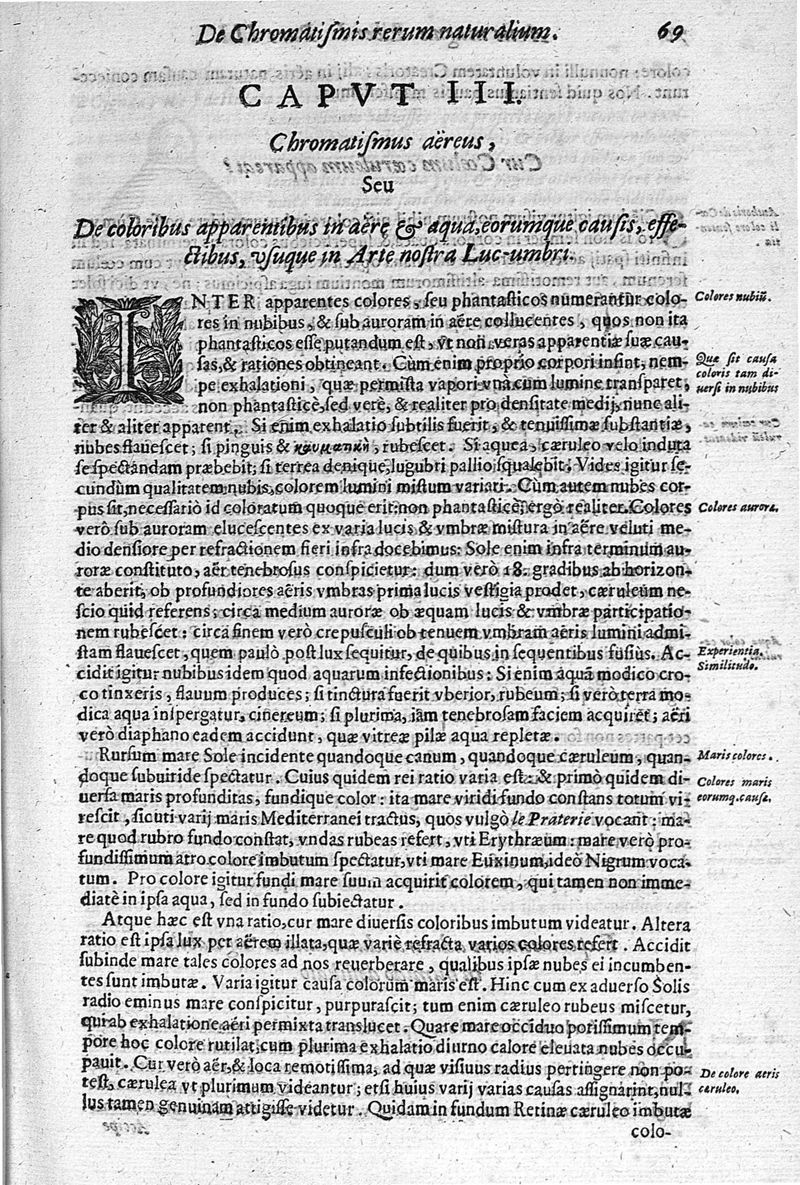 De Chromatiſmis rerum naturalium. 69
CAPVT III.
Chromatiſmus aëreus,
Seu
De coloribus apparentibus in aëre & aqua, eorumque cauſis, effe-
ctibus, vſuque in Arte noſtra Luc-umbri.
INTER apparentes colores, ſeu phantaſticos numerantur colo-
res in nubibus, & ſub auroram in aëre collucentes, quos non ita
phantaſticos eſſe putandum eſt, vt non veras apparentiæ ſuæ cau-
ſas, & rationes obtineant. Cùm enim proprio corpori inſint, nem-
pe exhalationi, quæ permiſta vapori vna cum lumine tranſparet,
non phantaſticè, ſed verè, & realiter pro denſitate medij, nunc ali-
ter & aliter apparent. Si enim exhalatio ſubtilis fuerit, & tenuiſſimæ ſubſtantiæ,
nubes flaueſcet; ſi pinguis & rubeſcet. Si aquea, cæruleo velo induta
ſe ſpectandam præbebit; ſi terrea denique, lugubri pallio ſqualebit. Vides igitur ſe-
cundùm qualitatem nubis, colorem lumini miſtum variari. Cùm autem nubes cor-
pus ſit, neceſſariò id coloratum quoque erit: non phantaſticè, ergò realiter. Colores
verò ſub auroram eluceſcentes ex varia lucis & vmbræ miſtura in aëre veluti me-
dio denſiore per refractionem fieri infra docebimus: Sole enim infra terminum au-
roræ conſtituto, aër tenebroſus conſpicietur: dum verò 18. gradibus ab horizon-
te aberit, ob profundiores aëris vmbras prima lucis veſtigia prodet, cæruleum ne-
ſcio quid referens; circa medium auroræ ob æquam lucis & vmbræ participatio-
nem rubeſcet: circa finem verò crepuſculi ob tenuem vmbram aëris lumini admi-
ſtam flaueſcet, quem paulò poſt lux ſequitur, de quibus in ſequentibus fuſiùs. Ac-
cidit igitur nubibus idem quod aquarum infectionibus: Si enim aquã modico cro-
co tinxeris, flauum produces; ſi tinctura fuerit vberior, rubeum; ſi verò terra mo-
dica aqua inſpergatur, cinereum; ſi plurima, iam tenebroſam faciem acquiret; aëri
verò diaphano eadem accidunt, quæ vitreæ pilæ aqua repletæ.
Rurſum mare Sole incidente quandoque canum, quandoque cæruleum, quan-
doque ſubuiride ſpectatur. Cuius quidem rei ratio varia eſt: & primò quidem di-
uerſa maris profunditas, fundique color: ita mare viridi fundo conſtans totum vi-
reſcit, ſicuti varij maris Mediterranei tractus, quos vulgò le Praterie vocant: ma-
re quod rubro fundo conſtat, vndas rubeas refert, vti Erythræum: mare verò pro-
fundiſſimum atro colore imbutum ſpectatur, vti mare Euxinum, ideò Nigrum voca-
tum. Pro colore igitur fundi mare ſuum acquirit colorem, qui tamen non imme-
diatè in ipſa aqua, ſed in fundo ſubiectatur.
Atque hæc eſt vna ratio, cur mare diuerſis coloribus imbutum videatur. Altera
ratio eſt ipſa lux per aërem illata, quæ variè refracta varios colores refert. Accidit
ſubinde mare tales colores ad nos reuerberare, qualibus ipſæ nubes ei incumben-
tes ſunt imbutæ. Varia igitur cauſa colorum maris eſt. Hinc cum ex aduerſo Solis
radio eminus mare conſpicitur, purpuraſcit; tum enim cæruleo rubeus miſcetur,
qui ab exhalatione aëri permixta tranſlucet. Quare mare occiduo potiſſimum tem-
pore hoc colore rutilat, cum plurima exhalatio diurno calore eleuata nubes occu-
pauit. Cur verò aër, & loca remotiſſima, ad quæ viſiuus radius pertingere non po-
teſt, cærulea vt plurimum videantur; etſi huius varij varias cauſas aſſignarint, nul-
lus tamen genuinam attigiſſe videtur. Quidam in fundum Retinæ cæruleo imbutæ
colo-
Colores nubiũ.
Quæ ſit cauſa
coloris tam di-
uerſi in nubibus
Colores auroræ.
Experientia.
Similitudo.
Maris colores.
Colores maris
eorumq. cauſa.
De colore aeris
cæruleo.